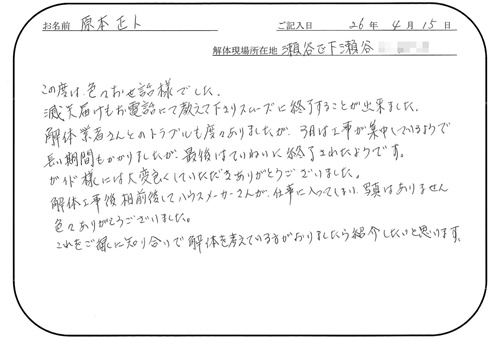 お名前 原本正人 ご記入日 26年 4月 15日
解体現場所在地 瀬谷区下瀬谷
この度は色々お世話様でした。
滅失届けもお電話にて教えて下さりスムーズに終了することが出来ました。
解体業者さんとのトラブルも度々ありましたが、3月は工事が集中しているようで
長い期間もかかりましたが、最後はていねいに終了されたようです。
ガイド様には大変良くしていただきありがとうございました。
解体工事後 相前後してハウスメーカーさんが、仕事に入ってしまい、写真はありません
色々ありがとうございました。
これをご縁に知り合いで解体を考えている方がおりましたら紹介したいと思います。